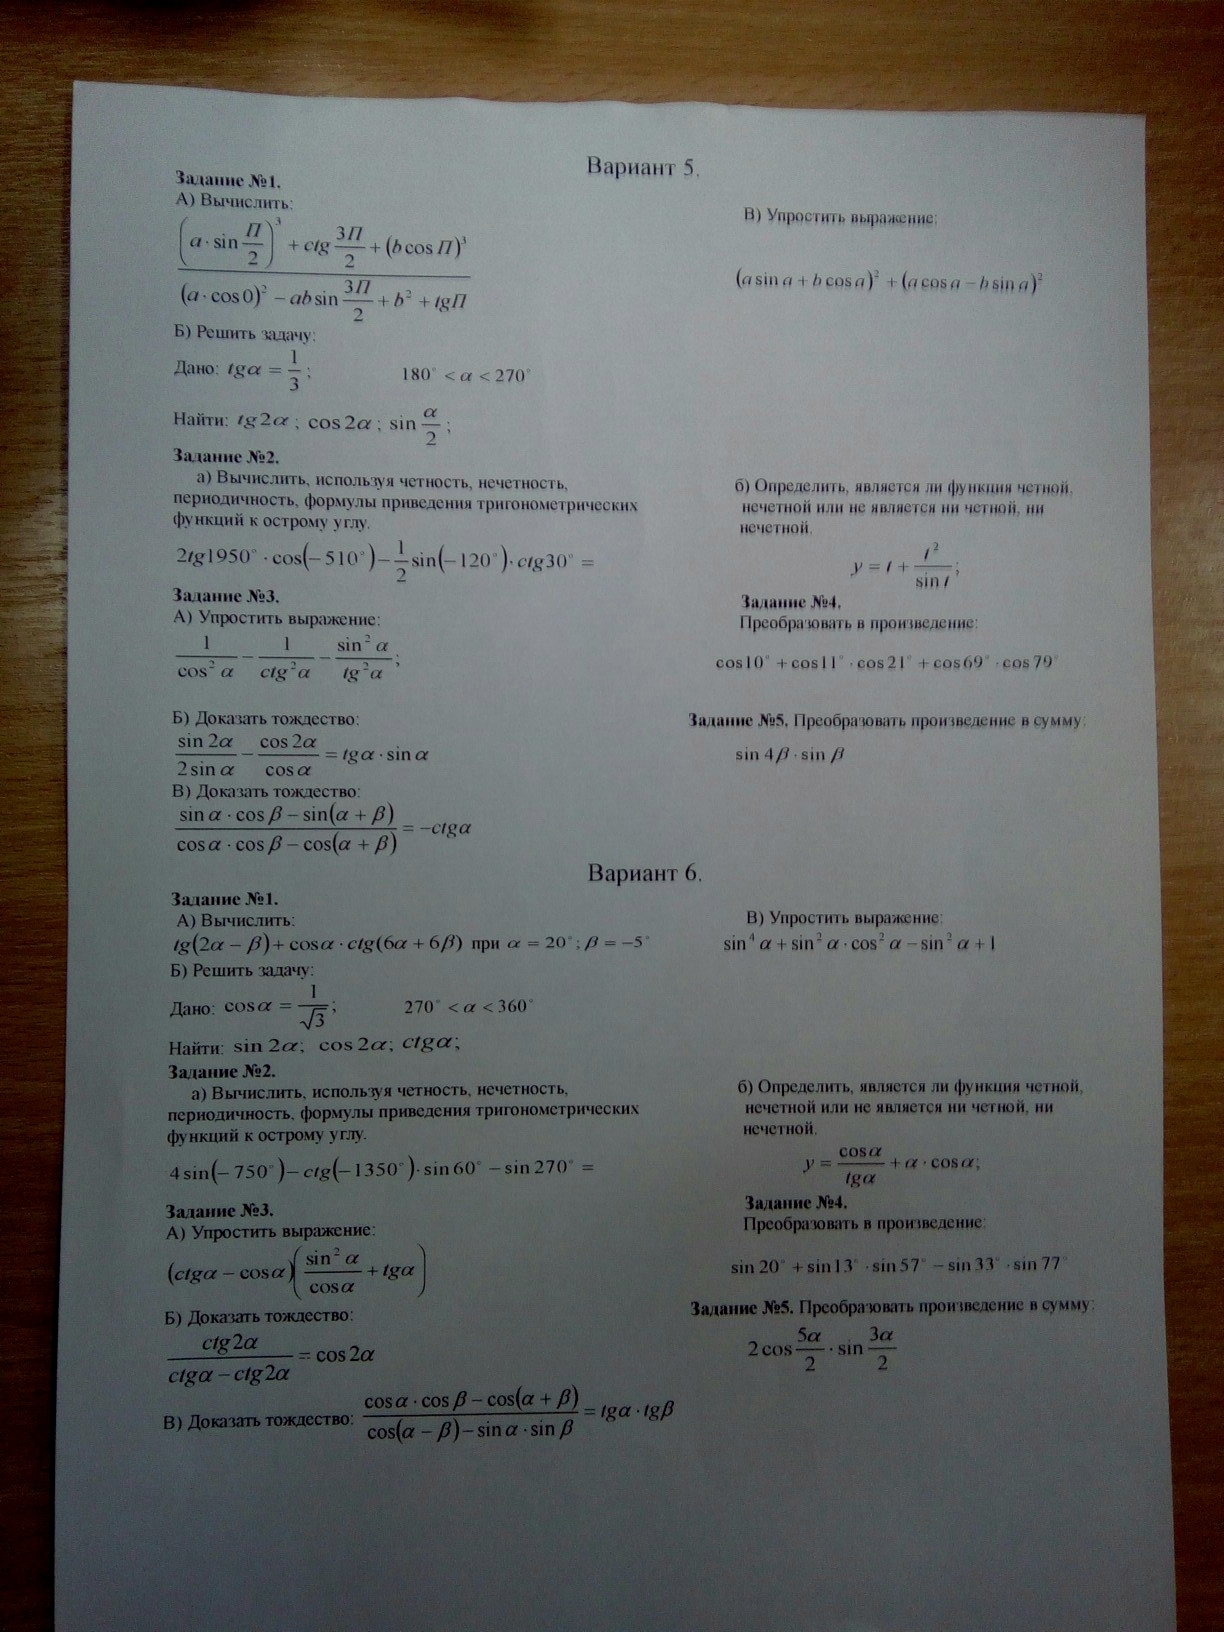 Вариант 5.
Задание №1.
А) Вычислить:
\frac{\left(a \cdot \sin\frac{П}{2}\right)^3 + ctg\frac{3П}{2} + (b\cos П)^3}{(a \cdot \cos 0)^2 - ab\sin\frac{3П}{2} + b^2 + tgП}
В) Упростить выражение:
(a sin a + b cos a)² + (a cos a − b sin a)²
Б) Решить задачу:
Дано: tgα = 1/3; 180° < α < 270°
Найти: tg2α ; cos2α ; sin α/2 ;
Задание №2.
а) Вычислить, используя четность, нечетность,
периодичность, формулы приведения тригонометрических
функций к острому углу.
2tg1950° · cos(−510°) − 1/2 sin(−120°) · ctg30° =
б) Определить, является ли функция четной,
нечетной или не является ни четной, ни
нечетной.
y = t + \frac{t^2}{\sin t};
Задание №3.
А) Упростить выражение:
\frac{1}{\cos^2 α} - \frac{1}{ctg^2 α} - \frac{\sin^2 α}{tg^2 α};
Задание №4.
Преобразовать в произведение:
cos10° + cos11° · cos21° + cos69° · cos79°
Б) Доказать тождество:
\frac{\sin 2α}{2\sin α} - \frac{\cos 2α}{\cos α} = tgα · sin α
Задание №5. Преобразовать произведение в сумму:
sin 4β · sin β
В) Доказать тождество:
\frac{\sin α · \cos β - \sin(α + β)}{\cos α · \cos β - \cos(α + β)} = −ctgα
Вариант 6.
Задание №1.
А) Вычислить:
tg(2α − β) + cosα · ctg(6α + 6β) при α = 20° ; β = −5°
В) Упростить выражение:
sin⁴ α + sin² α · cos² α − sin² α + 1
Б) Решить задачу:
Дано: cosα = \frac{1}{\sqrt{3}}; 270° < α < 360°
Найти: sin 2α; cos 2α; ctgα;
Задание №2.
а) Вычислить, используя четность, нечетность,
периодичность, формулы приведения тригонометрических
функций к острому углу.
4 sin(−750°) − ctg(−1350°) · sin 60° − sin 270° =
б) Определить, является ли функция четной,
нечетной или не является ни четной, ни
нечетной.
y = \frac{\cosα}{tgα} + α · cosα;
Задание №3.
А) Упростить выражение:
(ctgα − cosα)\left(\frac{\sin^2 α}{\cosα} + tgα\right)
Задание №4.
Преобразовать в произведение:
sin 20° + sin13° · sin 57° − sin 33° · sin 77°
Б) Доказать тождество:
\frac{ctg2α}{ctgα - ctg2α} = cos 2α
Задание №5. Преобразовать произведение в сумму:
2 cos \frac{5α}{2} · sin \frac{3α}{2}
В) Доказать тождество: \frac{\cosα · \cos β - \cos(α + β)}{\cos(α - β) - \sinα · \sin β} = tgα · tgβ